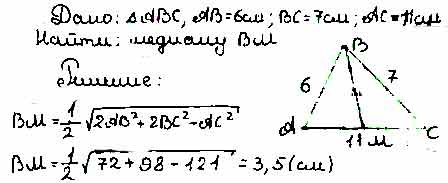 Дано: △ABC, AB=6см; BC=7см; AC=11см
Найти: медиану BM
Решение:
BM=½√(2AB²+2BC²-AC²)
BM=½√(72+98-121)=3,5(см)
B
6
7
A
11
M
C